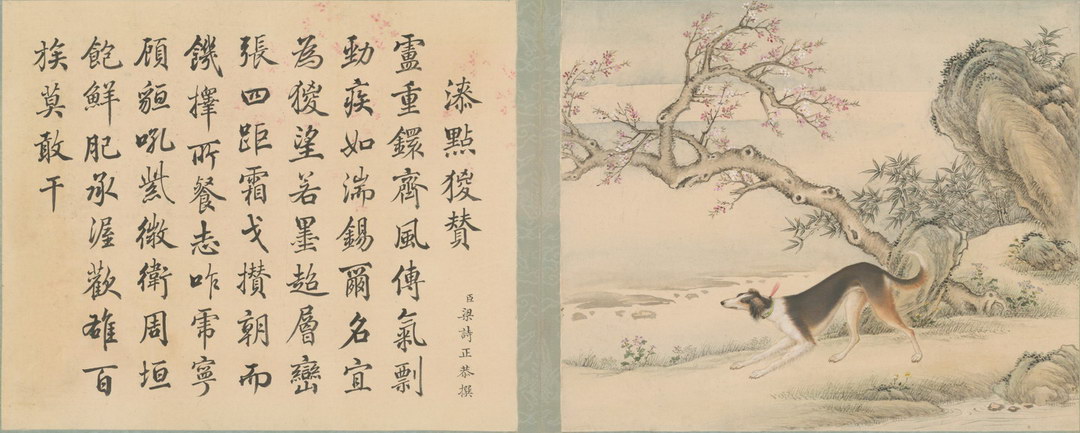 漆點猣賛
臣梁詩正恭撰
盧重鐶齊風傳氣剽
勁疾如湍錫爾名宜
為猣望若墨超層巒
張四距霜戈攢朝而
饑擇所餐志咋乕寧
頋貆吼紫微衛周垣
飽鮮肥承渥歡雄百
族莫敢干